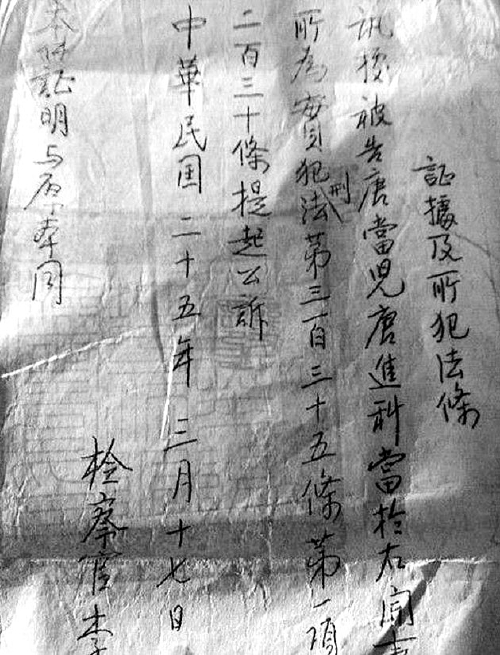 証據及所犯法條
訊據被告唐當児唐進科當於右開
所為實犯刑法第三百三十五條第一項
二百三十條提起公訴
中華民国二十五年三月十七日
栓察官李
本件証明与原本同